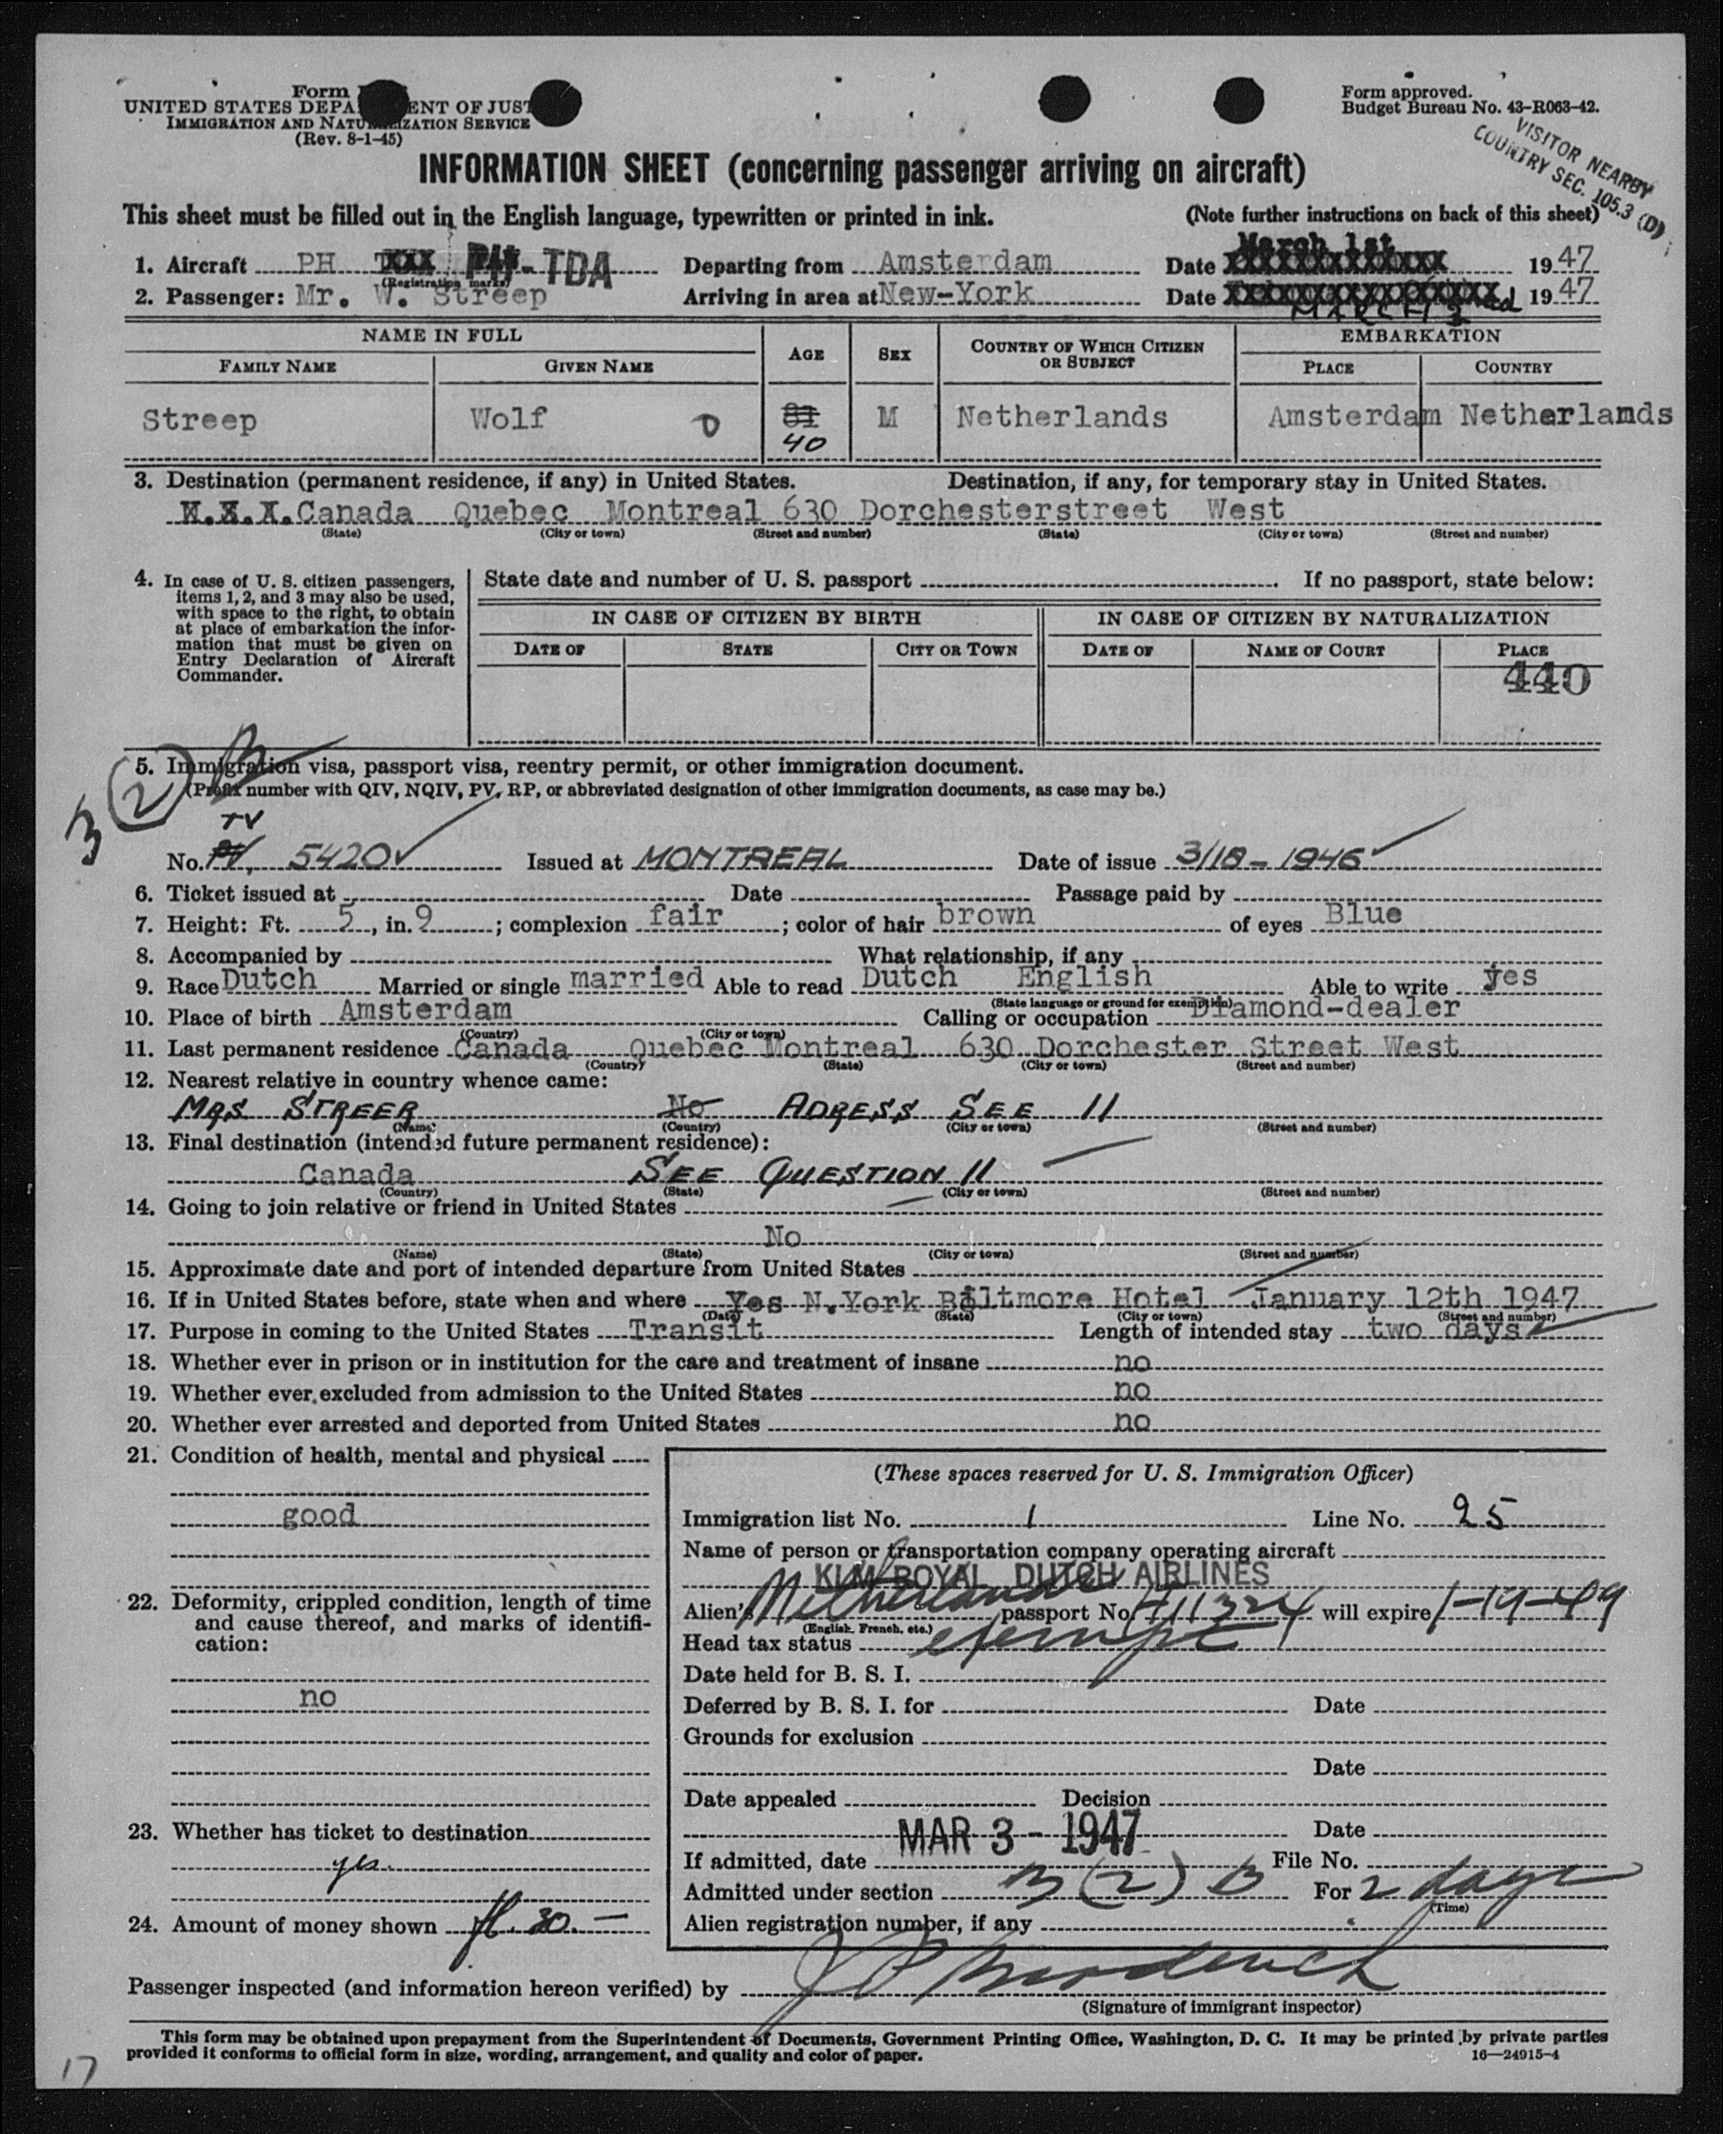 Form
UNITED STATES DEPA ENT OF JUST
IMMIGRATION AND NATU IZATION SERVICE
(Rev. 8-1-45)
Form approved.
Budget Bureau No. 43-R063-42.
VISITOR NEARBY
COUNTRY SEC. 105.3 (D)
INFORMATION SHEET (concerning passenger arriving on aircraft)
This sheet must be filled out in the English language, typewritten or printed in ink. (Note further instructions on back of this sheet)
1. Aircraft PH TDA Departing from Amsterdam Date March 1st 1947
(Registration marks)
2. Passenger: Mr. W. Streep Arriving in area at New-York Date MARCH 3 1947
NAME IN FULL AGE SEX COUNTRY OF WHICH CITIZEN OR SUBJECT EMBARKATION
FAMILY NAME GIVEN NAME PLACE COUNTRY
Streep Wolf D 31 M Netherlands Amsterdam Netherlands
40
3. Destination (permanent residence, if any) in United States. Destination, if any, for temporary stay in United States.
X.X.X. Canada Quebec Montreal 630 Dorchesterstreet West
(State) (City or town) (Street and number) (State) (City or town) (Street and number)
4. In case of U. S. citizen passengers, items 1, 2, and 3 may also be used, with space to the right, to obtain at place of embarkation the information that must be given on Entry Declaration of Aircraft Commander.
State date and number of U. S. passport . If no passport, state below:
IN CASE OF CITIZEN BY BIRTH IN CASE OF CITIZEN BY NATURALIZATION
DATE OF STATE CITY OR TOWN DATE OF NAME OF COURT PLACE
440
3 (2) B
5. Immigration visa, passport visa, reentry permit, or other immigration document.
(Prefix number with QIV, NQIV, PV, RP, or abbreviated designation of other immigration documents, as case may be.)
TV
No. PV, 5420 Issued at MONTREAL Date of issue 3/18-1946
6. Ticket issued at Date Passage paid by
7. Height: Ft. 5, in. 9; complexion fair; color of hair brown of eyes Blue
8. Accompanied by What relationship, if any
9. Race Dutch Married or single married Able to read Dutch English Able to write yes
(State language or ground for exemption)
10. Place of birth Amsterdam Calling or occupation Diamond-dealer
(Country) (City or town)
11. Last permanent residence Canada Quebec Montreal 630 Dorchester Street West
(Country) (State) (City or town) (Street and number)
12. Nearest relative in country whence came:
MRS STREEP No ADRESS SEE 11
(Name) (Country) (City or town) (Street and number)
13. Final destination (intended future permanent residence):
Canada SEE QUESTION 11
(Country) (State) (City or town) (Street and number)
14. Going to join relative or friend in United States
No
(Name) (State) (City or town) (Street and number)
15. Approximate date and port of intended departure from United States
16. If in United States before, state when and where Yes N.York Biltmore Hotel January 12th 1947
(Date) (State) (City or town) (Street and number)
17. Purpose in coming to the United States Transit Length of intended stay two days
18. Whether ever in prison or in institution for the care and treatment of insane no
19. Whether ever excluded from admission to the United States no
20. Whether ever arrested and deported from United States no
21. Condition of health, mental and physical
good
22. Deformity, crippled condition, length of time and cause thereof, and marks of identification:
no
23. Whether has ticket to destination
yes.
24. Amount of money shown fl. 30.—
(These spaces reserved for U. S. Immigration Officer)
Immigration list No. 1 Line No. 25
Name of person or transportation company operating aircraft
KLM ROYAL DUTCH AIRLINES
Alien's Netherlands passport No. will expire 1-19-49
(English, French, etc.)
Head tax status exempt
Date held for B. S. I.
Deferred by B. S. I. for Date
Grounds for exclusion
Date
Date appealed Decision
MAR 3 - 1947 Date
If admitted, date File No.
Admitted under section 3 (2) B For 2 days
(Time)
Alien registration number, if any
Passenger inspected (and information hereon verified) by
(Signature of immigrant inspector)
This form may be obtained upon prepayment from the Superintendent of Documents, Government Printing Office, Washington, D. C. It may be printed by private parties
provided it conforms to official form in size, wording, arrangement, and quality and color of paper. 16—24915-4
17